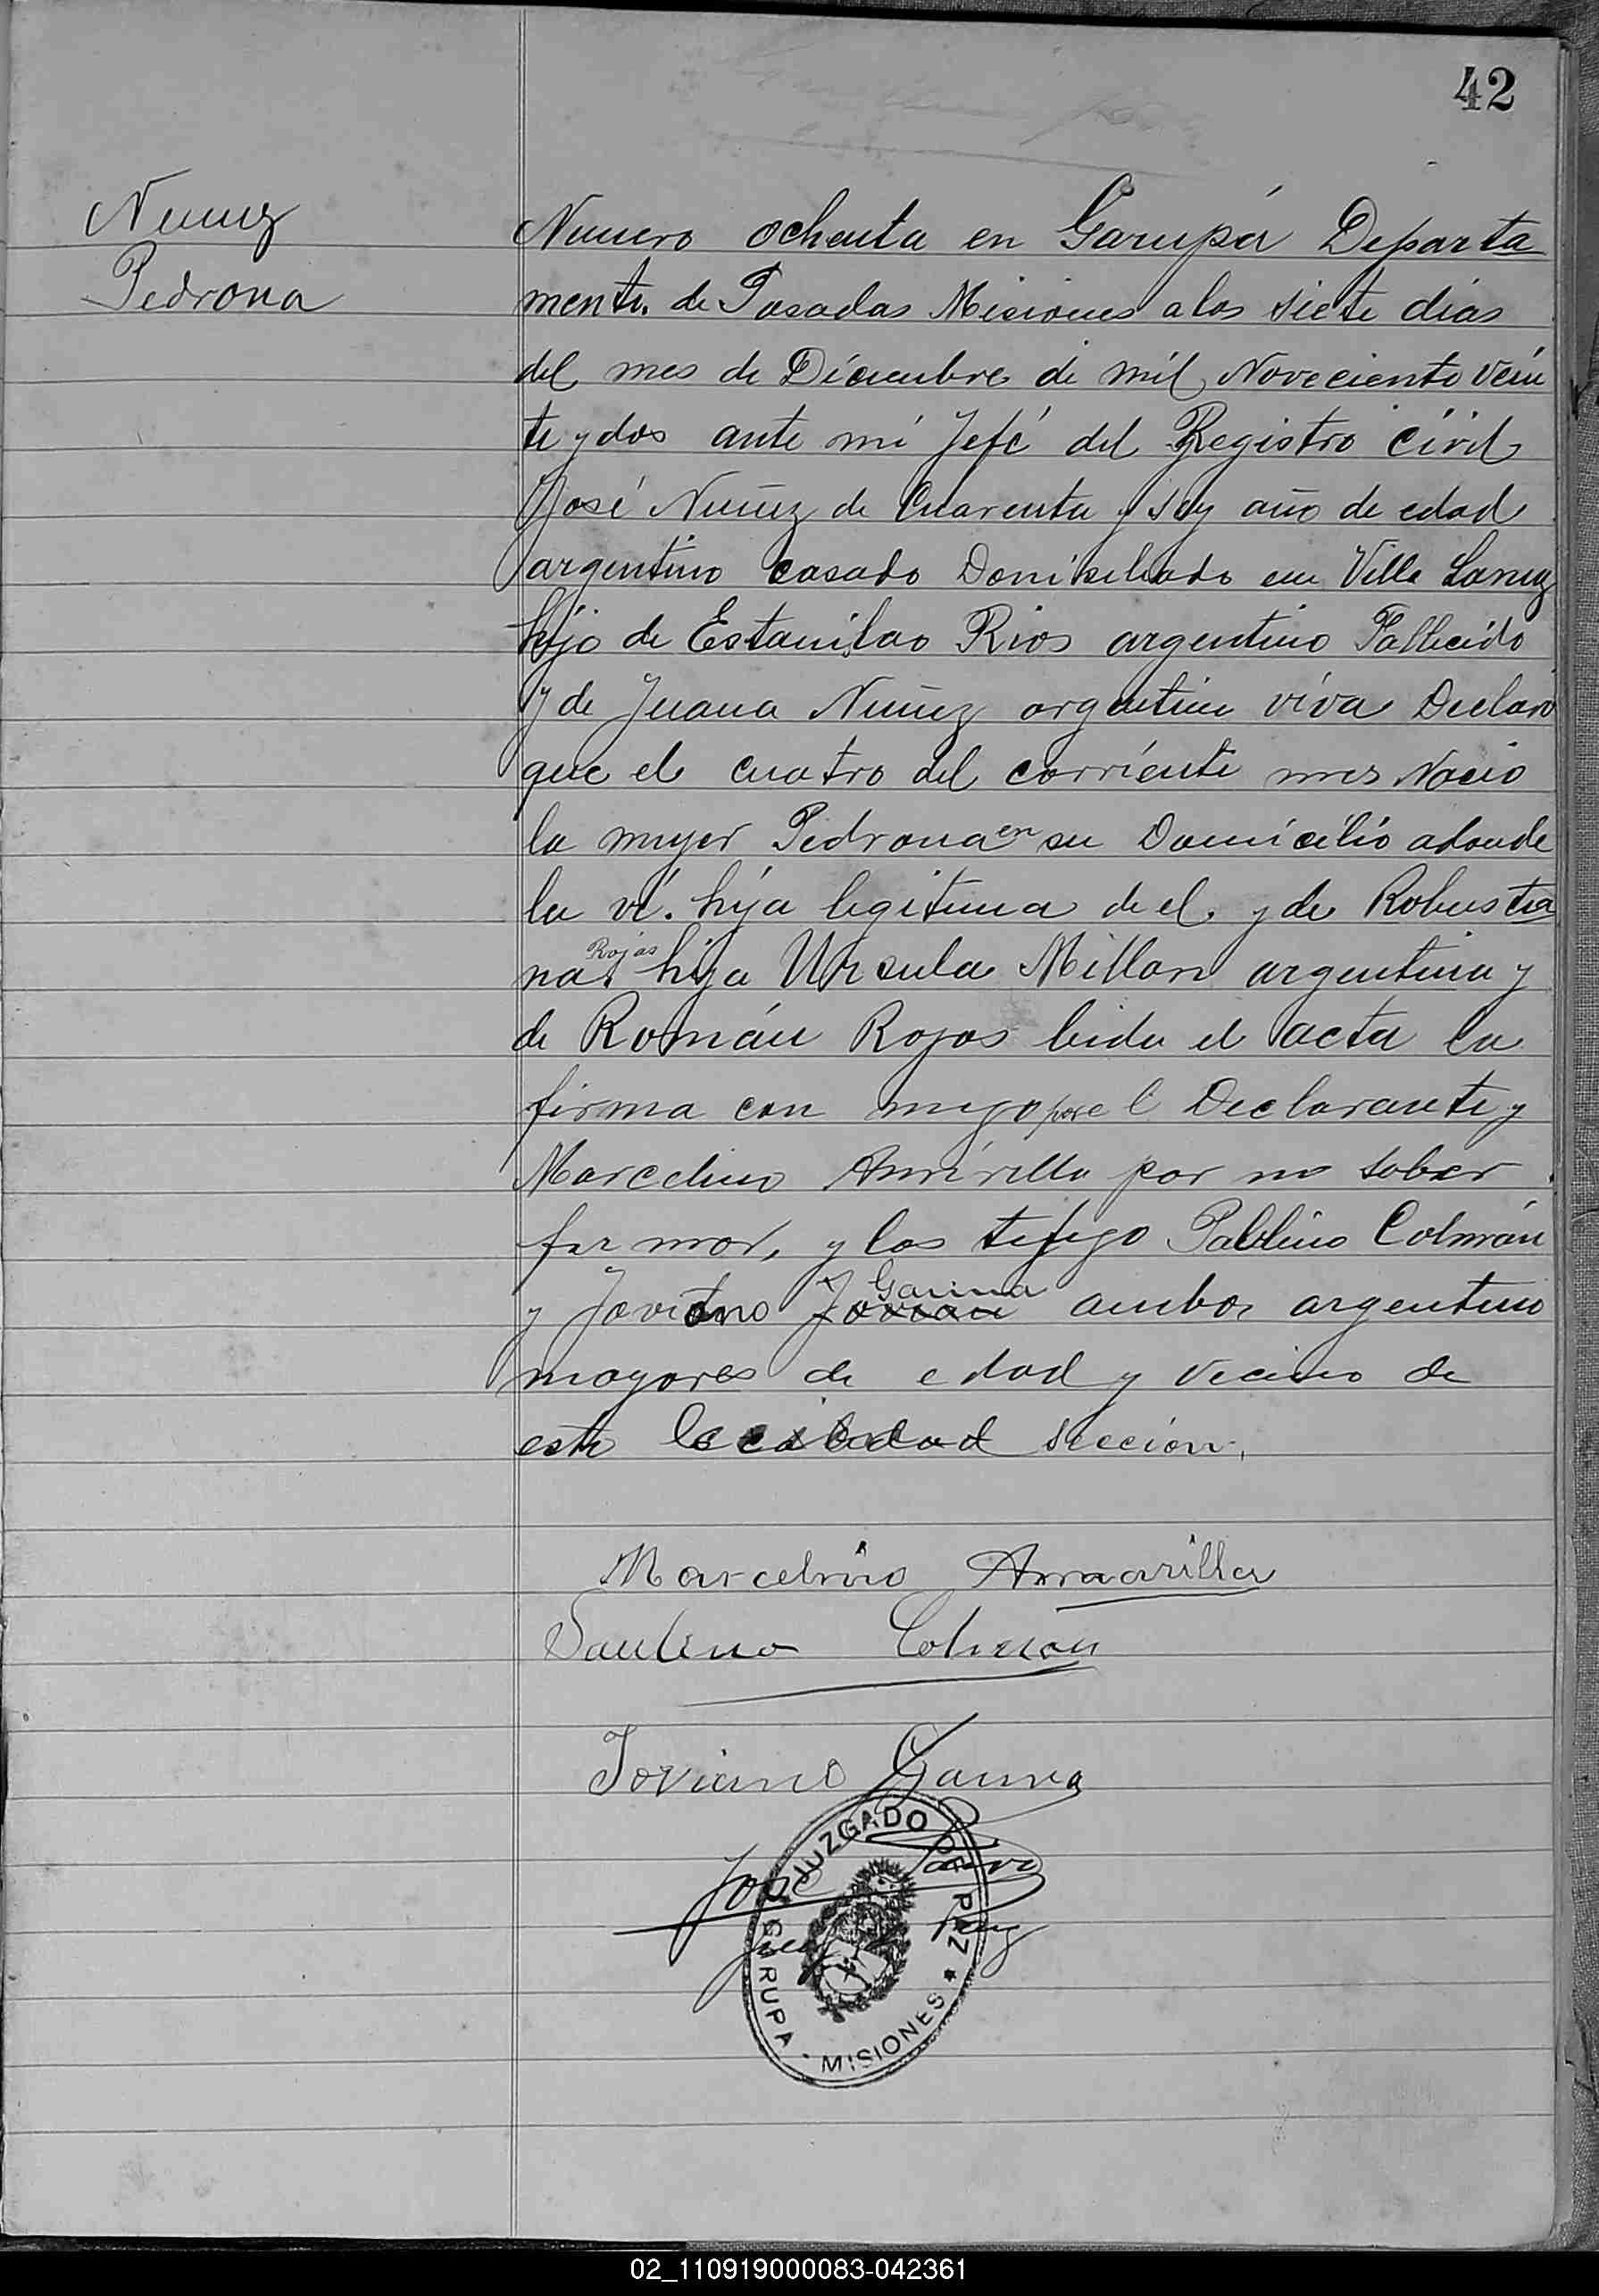 42
Nuñez
Pedrona
Numero ochenta en Garupá Departa
mento. de Posadas Misiones a los siete dias
del mes de Diciembre de mil Noveciento Vein
te y dos ante mi Jefé del Registro Civil
José Nuñez de Cuarenta y sey año de edad
argentino casado Domiciliado en Villa Lanuz
hijo de Estanilao Rios argentino Fallecido
y de Juana Nuñez argentina viva Declaró
que el cuatro del corriente mes Nacio
la mujer Pedrona en su Domicilio adonde
la ví. hija legitima de el. y de Robustia
na. Rojas hija Ursula Millan argentina y
de Román Rojas leida el acta la
firma con migo por el Declarante y
Marcelino Amarilla por no saber
firmar, y los testigo Pablino Colmán
y Joviano Gauna ambos argentino
mayores de edad y vecino de
esta localidad sección.
Marcelino Amarilla
Paulino Colman
Joviano Gauna
José
JUZGADO DE PAZ
GARUPA - MISIONES *
02_110919000083-042361